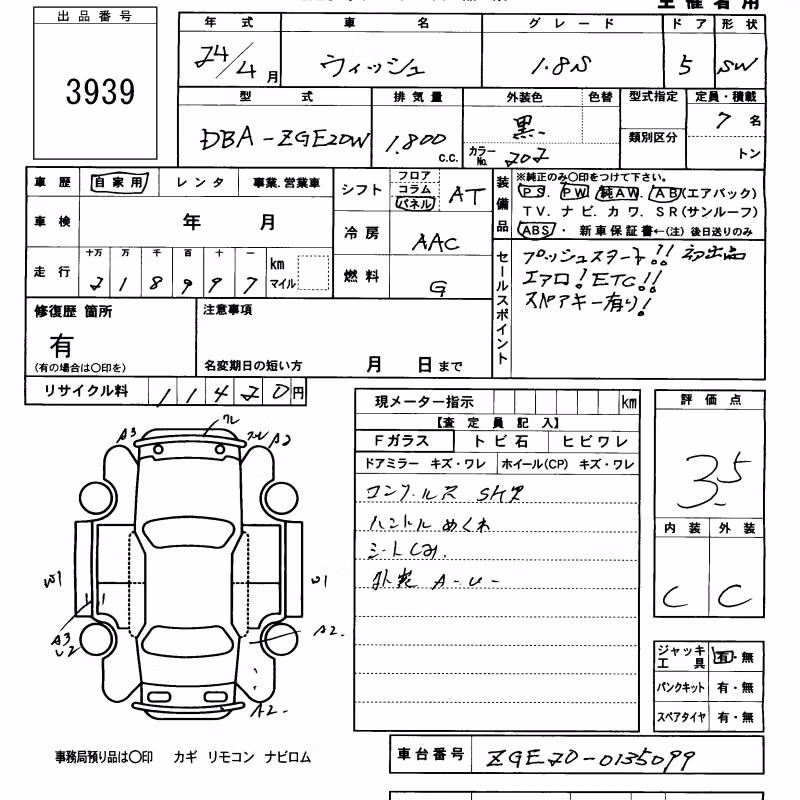 主催者用
出品番号
3939
年式 車名 グレード ドア 形状
24/4月 ウィッシュ 1.8S 5 SW
型式 排気量 外装色 色替 型式指定 定員・積載
DBA-ZGE20W 1.800 c.c. 黒 カラーNo. 202 類別区分 7名
トン
車歴 自家用 レンタ 事業.営業車
車検 年 月
走行 十万 万 千 百 十 一 km マイル
2 1 8 9 9 7
シフト フロア コラム パネル AT
冷房 AAC
燃料 G
装備品
※純正のみ〇印をつけて下さい。
PS. PW. 純AW. AB(エアバック)
TV. ナビ. カワ. SR(サンルーフ)
ABS・ 新車保証書←(注) 後日送りのみ
セールスポイント
プッシュスタート!! 初出品
エアロ! ETC!!
スペアキー有り!
修復歴 箇所
有
(有の場合は〇印を)
注意事項
名変期日の短い方 月 日まで
リサイクル料 11420円
現メーター指示 km
【査定員記入】
Fガラス トビ石 ヒビワレ
ドアミラー キズ・ワレ ホイール(CP) キズ・ワレ
ハンドルめくれ
シートしみ.
外装 A-U-
評価点
3.5
内装 外装
C C
ジャッキ工具 有・無
パンクキット 有・無
スペアタイヤ 有・無
A3 ワレ A2
W1 W1
A3 A2
A2
事務局預り品は〇印 カギ リモコン ナビロム
車台番号 ZGE20-0135099